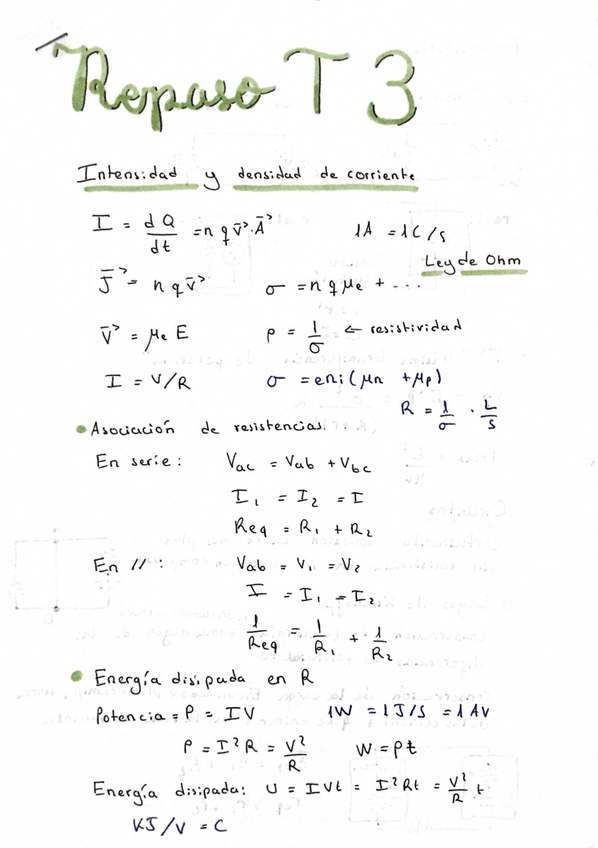 Repaso T 3
Intensidad y densidad de corriente
I = dQ/dt = n q v⃗ · A⃗    1A = 1C/s
Ley de Ohm
J⃗ = n q v⃗    σ = n q μe + ...
v⃗ = μe E    ρ = 1/σ ← resistividad
I = V/R    σ = e ni (μn + μp)
R = 1/σ · L/S
• Asociación de resistencias.
En serie: Vac = Vab + Vbc
I₁ = I₂ = I
Req = R₁ + R₂
En // : Vab = V₁ = V₂
I = I₁ = I₂
1/Req = 1/R₁ + 1/R₂
• Energía disipada en R
Potencia = P = IV    1W = 1J/s = 1AV
P = I²R = V²/R    W = Pt
Energía disipada: U = IVt = I²Rt = V²/R t
KJ/V = C